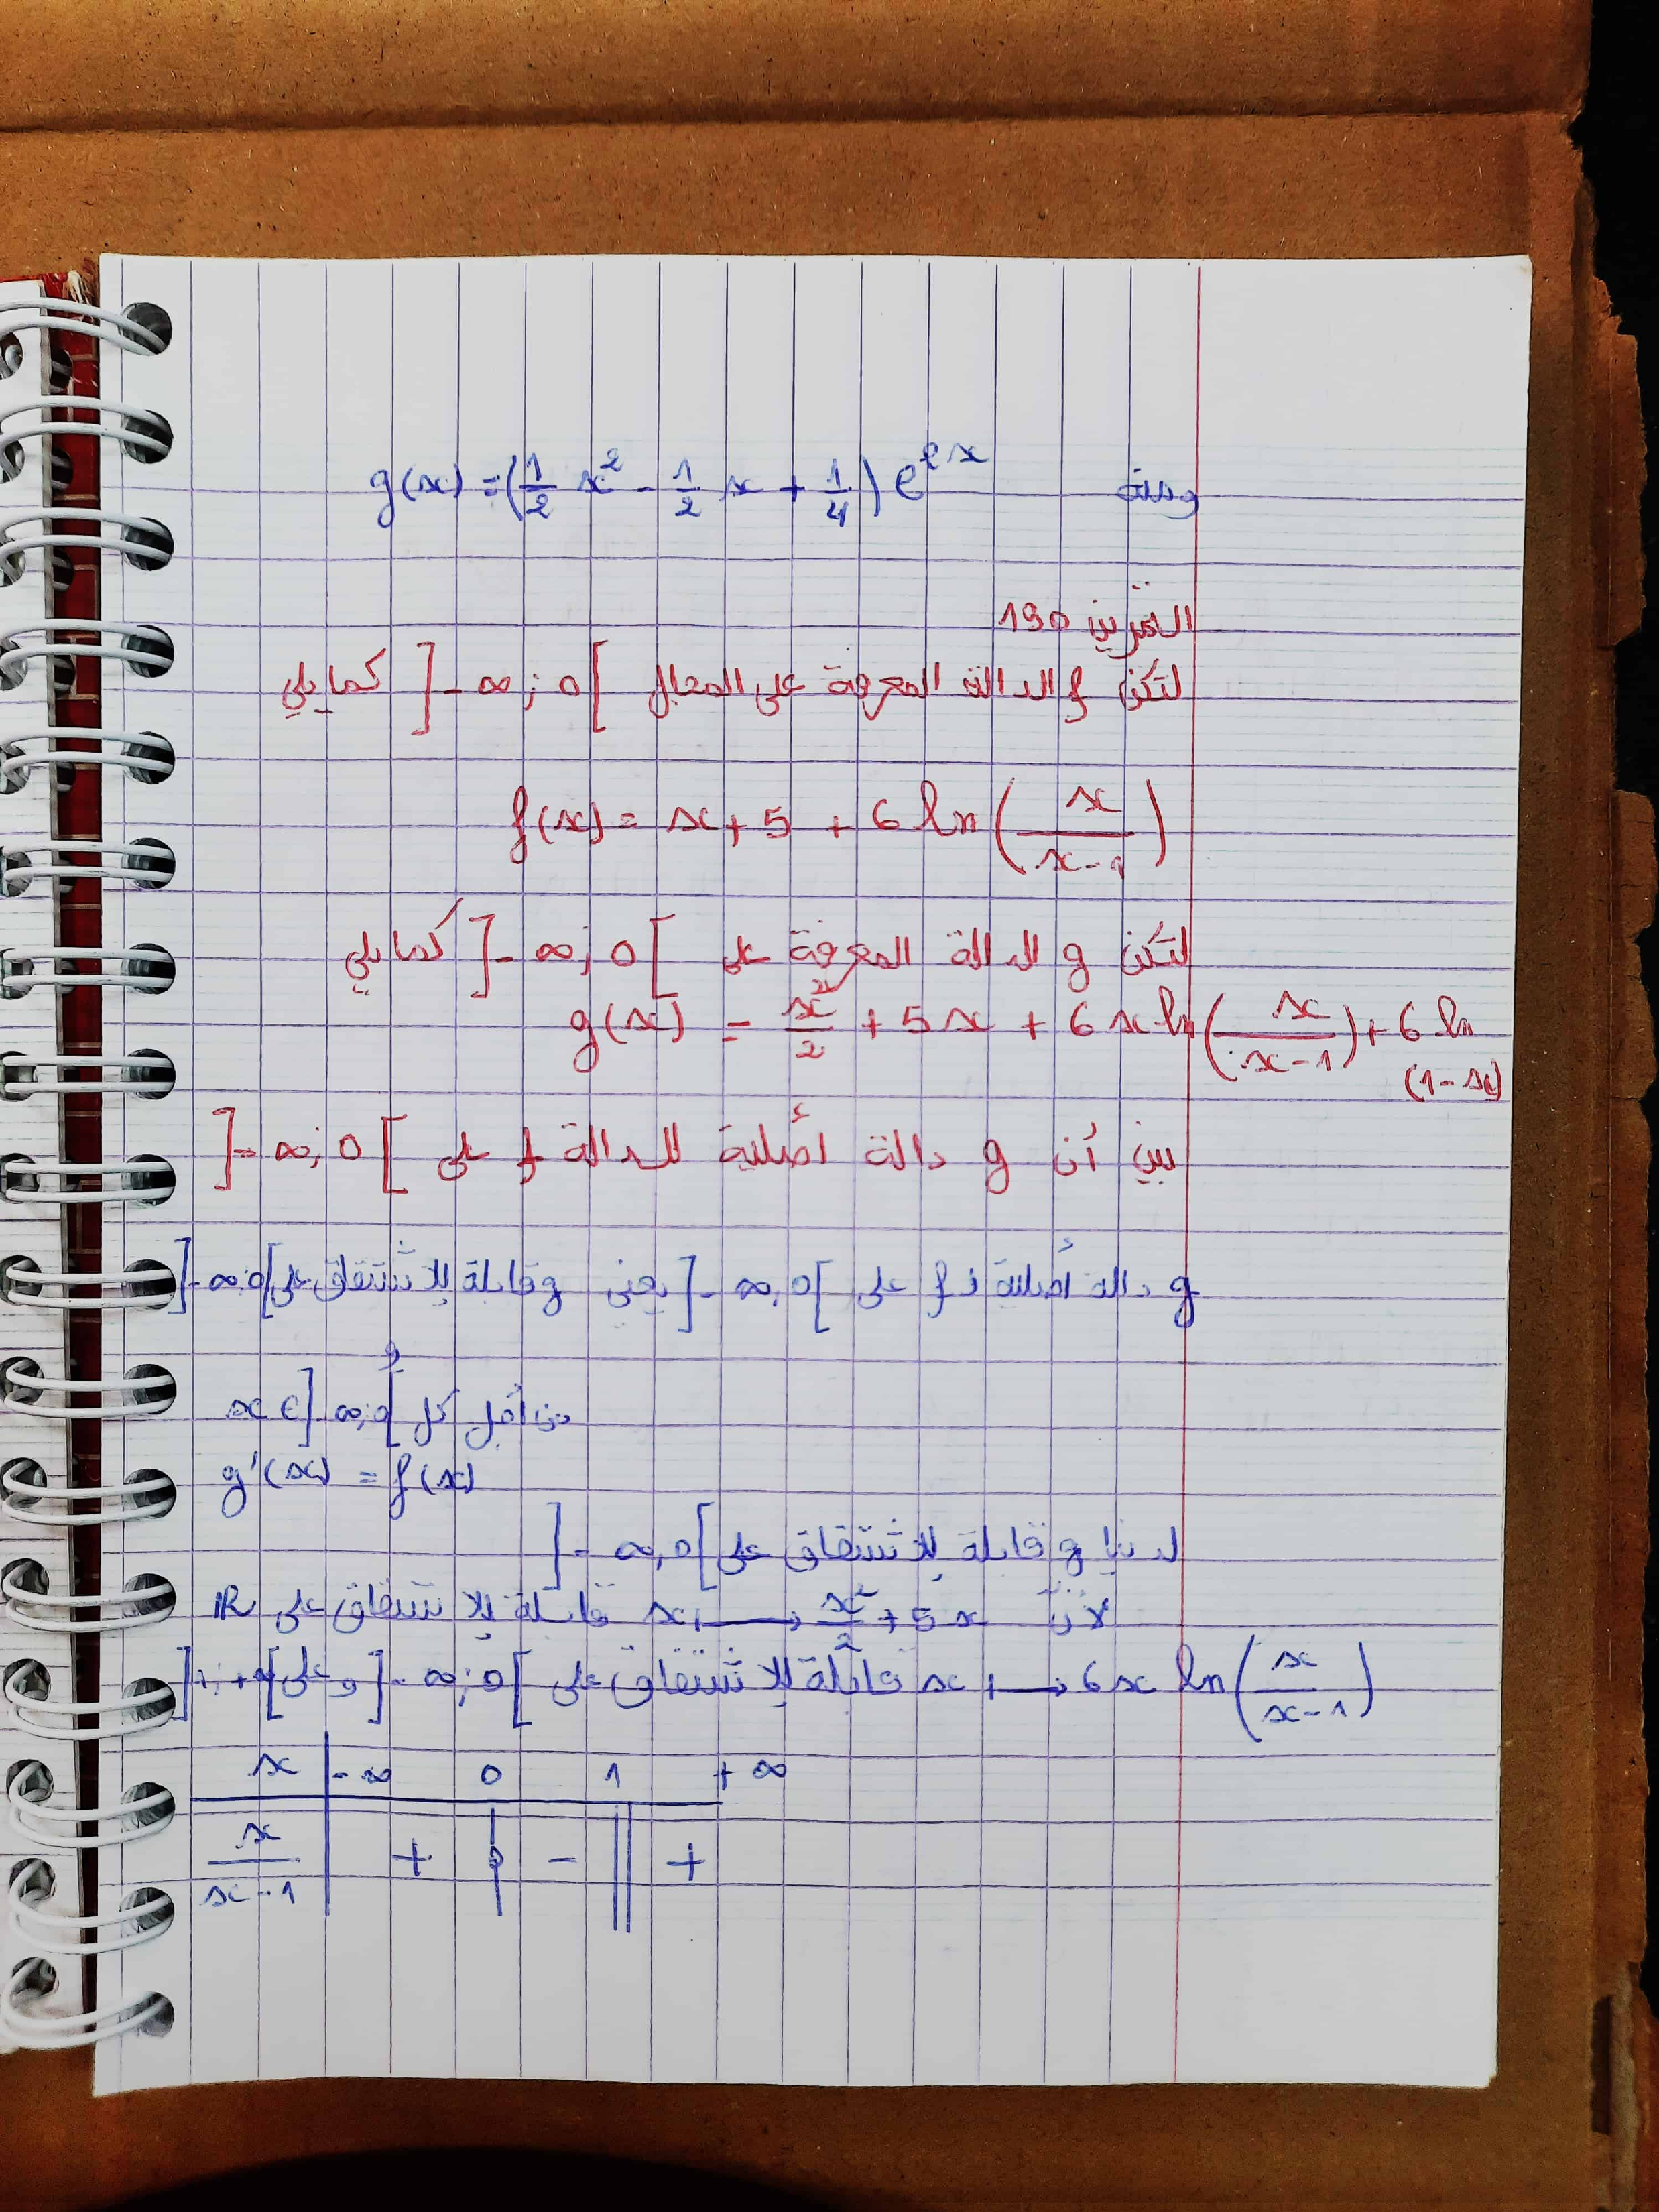 ومنه g(x) = (1/2 x² - 1/2 x + 1/4) e^{2x}
التمرين 190
لتكن f الدالة المعرفة على المجال ]-∞ ; 0[ كمايلي
f(x) = x + 5 + 6 ln(x/(x-1))
لتكن g الدالة المعرفة على ]-∞ ; 0[ كمايلي
g(x) = x²/2 + 5x + 6x ln(x/(x-1)) + 6 ln
(1-x)
بين أن g دالة أصلية للدالة f على ]-∞ ; 0[
g دالة أصلية لـ f على ]-∞ ; 0[ يعني g قابلة للاشتقاق على ]-∞ ; 0[
و
من أجل كل x ∈ ]-∞ ; 0[
g'(x) = f(x)
لدينا g قابلة للاشتقاق على ]-∞ ; 0[
لأن x ↦ x²/2 + 5x قابلة للاشتقاق على ℝ
x ↦ 6x ln(x/(x-1)) قابلة للاشتقاق على ]-∞ ; 0[ وعلى ]1 ; +∞[
x -∞ 0 1 +∞
x/(x-1) + 0 - || +